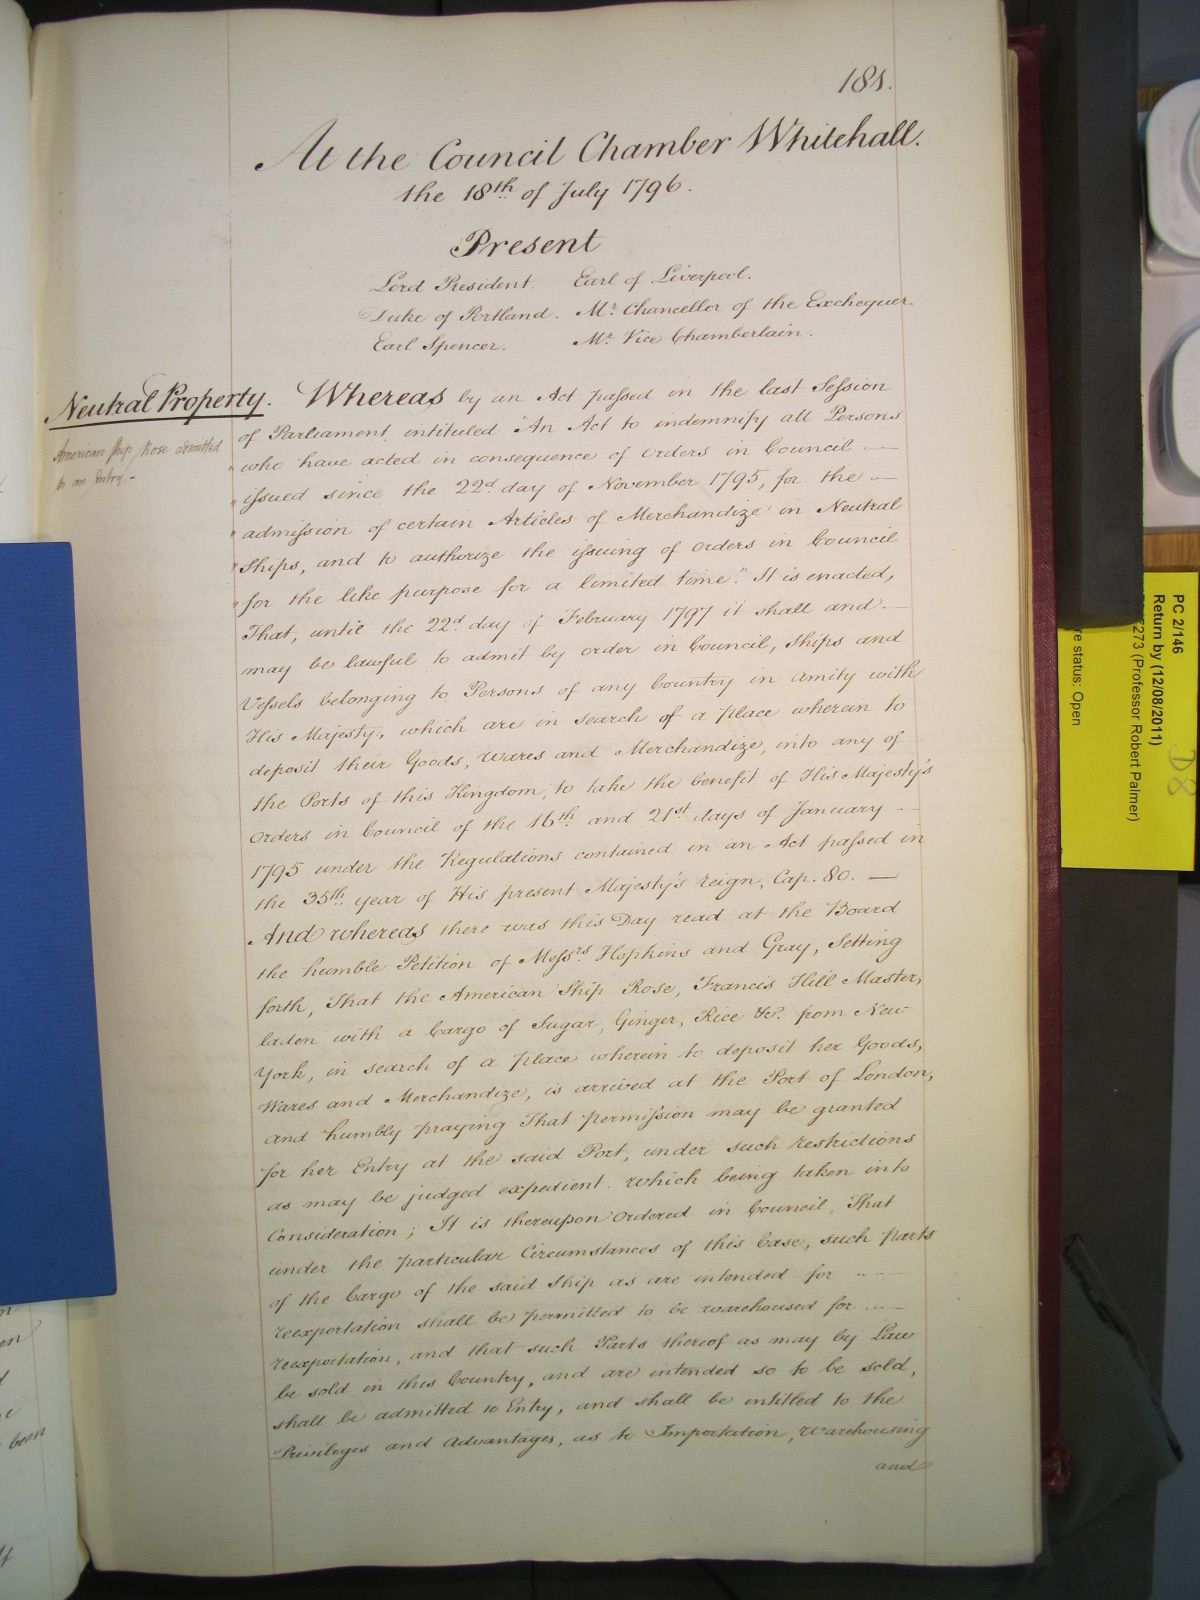 181.
At the Council Chamber Whitehall.
the 18th of July 1796.
Present
Lord President. Earl of Liverpool.
Duke of Portland. Mr. Chancellor of the Exchequer.
Earl Spencer. Mr. Vice Chamberlain.
Neutral Property. Whereas by an Act passed in the last Session
American Ship Rose admitted
to an Entry -
of Parliament, intituled "An Act to indemnify all Persons
"who have acted in consequence of Orders in Council —
"issued since the 22d. day of November 1795, for the —
"admission of certain Articles of Merchandize in Neutral
"Ships, and to authorize the issuing of Orders in Council
"for the like purpose for a limited time." It is enacted,
That, until the 22d. day of February 1797 it shall and —
may be lawful to admit by order in Council, Ships and
Vessels belonging to Persons of any Country in amity with
His Majesty, which are in search of a place wherein to
deposit their Goods, Wares and Merchandize, into any of
the Ports of this Kingdom, to take the benefit of His Majesty's
Orders in Council of the 16th. and 21st. days of January —
1795 under the Regulations contained in an Act passed in
the 35th. year of His present Majesty's reign, Cap. 80. —
And whereas there was this Day read at the Board
the humble Petition of Messrs. Hopkins and Gray, Setting
forth, That the American Ship Rose, Francis Hill Master,
laden with a Cargo of Sugar, Ginger, Rice &c. from New
York, in search of a place wherein to deposit her Goods,
Wares and Merchandize, is arrived at the Port of London,
and humbly praying That permission may be granted
for her Entry at the said Port, under such restrictions
as may be judged expedient. which being taken into
Consideration; It is thereupon Ordered in Council, That
under the particular Circumstances of this Case, such parts
of the Cargo of the said Ship as are intended for —
reexportation shall be permitted to be warehoused for —
reexportation, and that such Parts thereof as may by Law
be sold in this Country, and are intended so to be sold,
shall be admitted to Entry, and shall be intitled to the
Privileges and Advantages, as to Importation, Warehousing
and
PC 2/146
Return by (12/08/2011)
7273 (Professor Robert Palmer)
re status: Open
D8
en
been